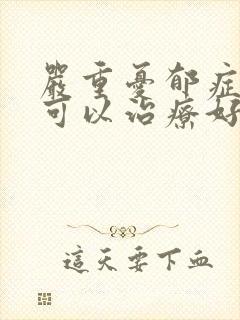 嚴重憂郁症
可以治療好
這天要下血